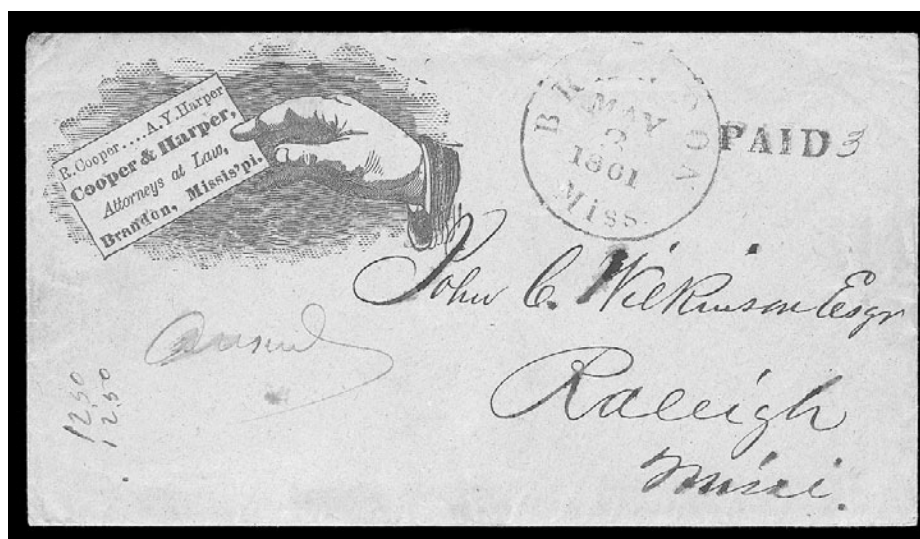 R. Cooper .... A. Y. Harper
Cooper & Harper,
Attorneys at Law,
Brandon, Missis'pi.
BRANDON
MAY
2
1861
Miss
PAID 3
John C. Wilkinson Esqr
Raleigh
Missi.
12,50
12,50